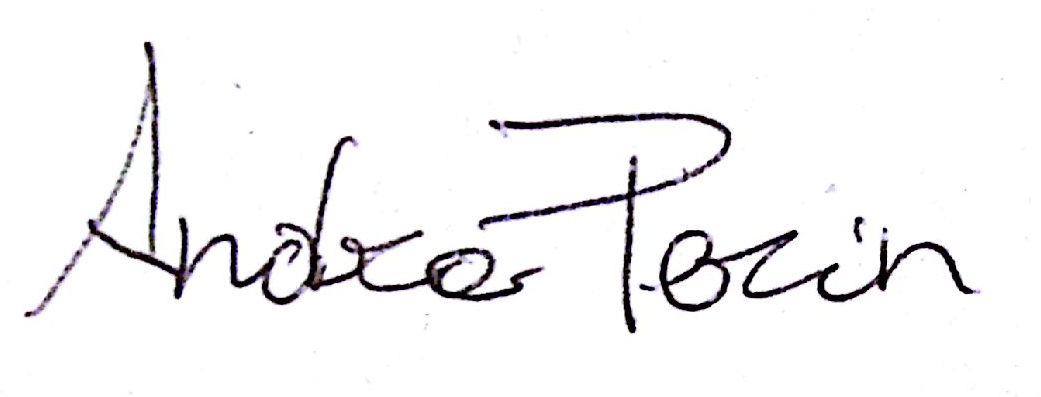 Andrea Perin